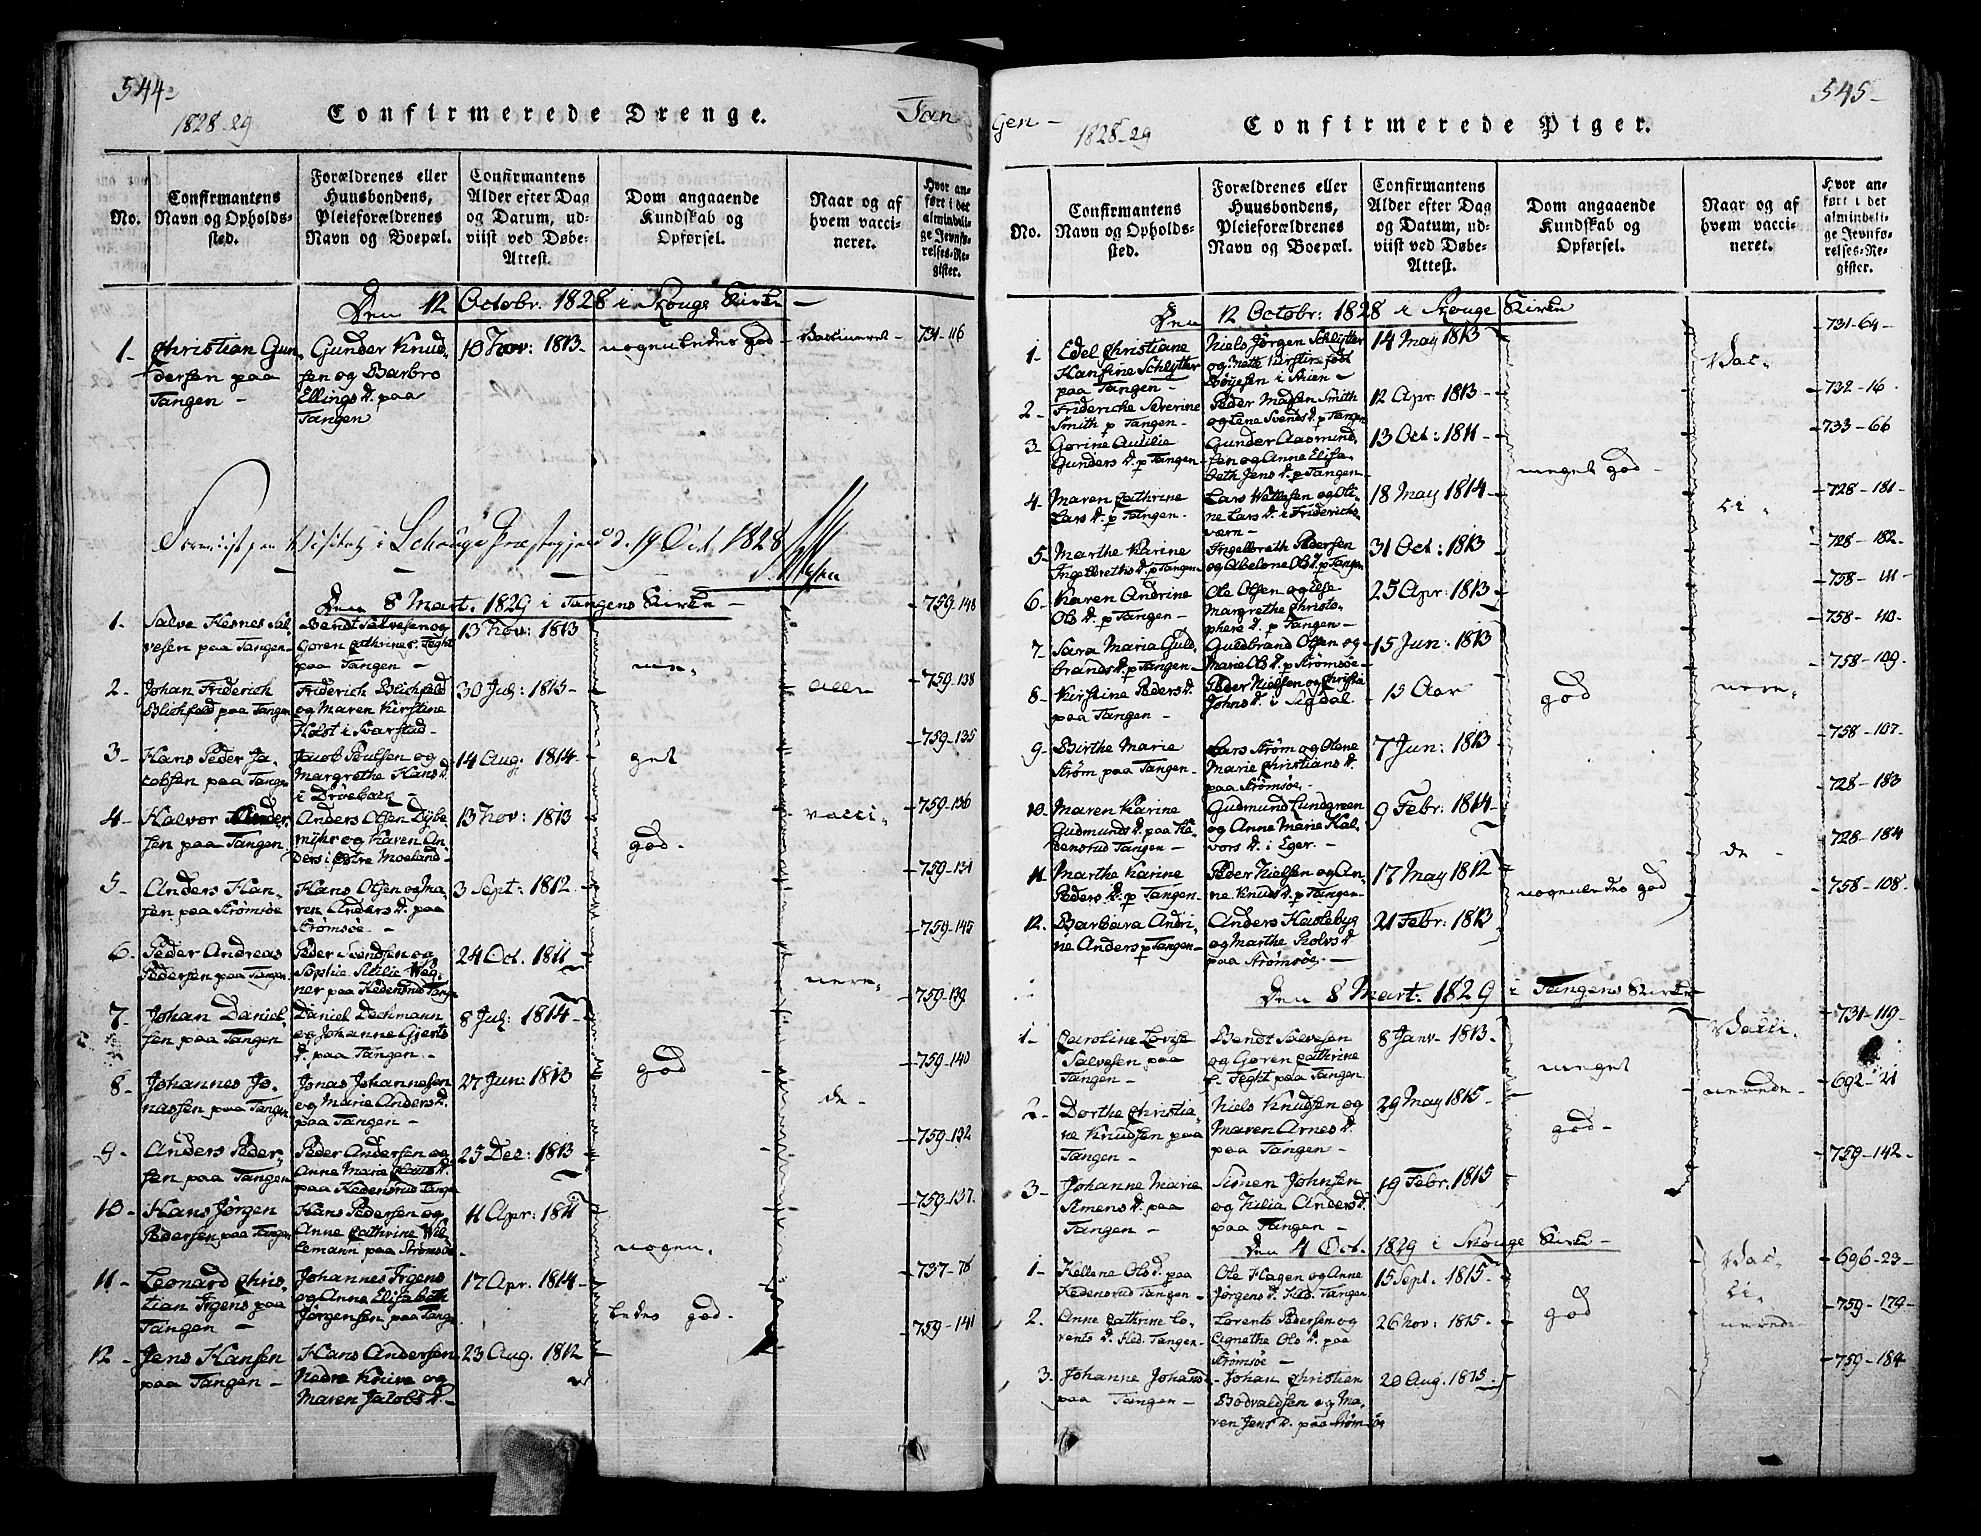 544-
1828-29
Confirmerede Drenge.
Tan
No.
Confirmantens
Navn og Opholds-
sted.
Forældrenes eller
Huusbondens,
Pleieforældrenes
Navn og Boepæl.
Confirmantens
Alder efter Dag
og Datum, ud-
viist ved Døbe-
Attest.
Dom angaaende
Kundskab og
Opførsel.
Naar og af
hvem vacci-
neret.
Hvor an-
ført i det
almindeli-
ge Jevnfø-
relses-Re-
gister.
Den 12 Octobr. 1828 i Skouge Kirke
1-
Christian Gun
dersen paa
Tangen -
Gunder Knud-
sen og Barbro
Ellings D. paa
Tangen
10 Nov: 1813-
nogenledes god
Vaccineret-
731-116
Visitatz i Schouge Præstegjeld d. 19 Oct. 1828
Den 8 Mart. 1829 i Tangens Kirke -
1-
Salve Hesnes Sal-
vesen paa Tangen-
Bendt Salvesen og
Goren Cathrine f. Feght
paa Tangen -
13 Nov: 1813
759-148
2-
Johan Friderich
Blichfeld paa Tangen
Friderich Blichfeld
og Maren Kirstine
Holst i Svarstad-
30 Jul: 1815-
759-138
3-
Hans Peder Ja-
cobsen paa Tangen
Jacob Poulsen og
Margrethe Hans D.
i Drøebach -
14 Aug. 1814-
get
759-135
4-
Halvor Ander-
sen paa Tangen
Anders Olsen Dybe-
myhr og Karen An-
ders i Østre Moeland-
13 Nov: 1813
god-
vacci-
759-136
5-
Anders Han-
sen paa Strømsøe
Hans Olsen og Ma-
ren Anders D. paa
Strømsøe -
3 Sept: 1812-
759-134
6-
Peder Andreas
Pedersen paa Tangen-
Peder Svendsen og
Sophie Atilie Weg-
ner paa Hedensrud Tange
24 Oct. 1811
nere-
759-145
7-
Johan Daniel-
sen paa Tangen
Daniel Dechmann
og Johanne Gjerts
D. paa Tangen -
8 Jul: 1814-
759-139
8-
Johannes Jo-
nassen paa Tangen
Jonas Johannesen
og Marie Anders D.
paa Tangen -
27 Jun: 1813
god
de-
759-140
9-
Anders Peder-
sen paa Tangen
Peder Andersen og
Anne Marie Hans D.
paa Hedensrud Tange
25 Dec: 1813
759-132
10-
Hans Jørgen
Pedersen paa Tangen
Hans Pedersen og
Anne Cathrine Wil-
lemann paa Strømsøe
11 Apr: 1811
nogen-
759-137.
11-
Leonard Chris-
tian Irgens paa
Tangen -
Johannes Irgens
og Anne Elisabeth
Jørgensen paa Tange
17 Apr. 1814-
ledes god-
737-76
12-
Jens Hansen
paa Tangen -
Hans Andersen
Nedre Knive og
Maren Jacobs D.-
23 Aug. 1812
759-141
gen-
1828-29
Confirmerede Piger.
545-
No.
Confirmantens
Navn og Opholds-
sted.
Forældrenes eller
Huusbondens,
Pleieforældrenes
Navn og Boepæl.
Confirmantens
Alder efter Dag
og Datum, ud-
viist ved Døbe-
Attest.
Dom angaaende
Kundskab og
Opførsel.
Naar og af
hvem vacci-
neret.
Hvor an-
ført i det
almindeli-
ge Jevnfø-
relses-Re-
gister.
Den 12 Octobr: 1828 i Skouge Kirke
1-
Edel Christiane
Hansine Schlytter
paa Tangen -
Niels Jørgen Schlytter
og Mette Kirstin født
Bøyesen i Skien -
14 May 1813
Vac-
731-64-
2-
Fridericke Severine
Smith p Tangen-
Peder Madsen Smith
og Lene Svends D. p Tangen
12 Apr. 1813-
732-16.
3-
Gorine Aucilie
Gunders D. p Tangen
Gunder Aasmund-
sen og Anne Elisa-
beth Jens D. p Tangen
13 Oct: 1811-
meget god-
733-66
4-
Maren Cathrine
Lars D. p Tangen-
Lars Wettesen og Oli-
ne Lars D. i Friderichs-
værn-
18 May 1814
ci-
728-181-
5-
Marthe Karine
Ingelbreths D. p Tangen
Ingelbreth Pedersen
og Abelone Ols D. p Tangen
31 Oct: 1813
728-182-
6-
Karen Andrine
Ols D. p Tangen -
Ole Olsen og Else
Margrethe Christo-
phers D. p Tangen -
25 Apr: 1813
758-111-
7-
Sara Maria Guld-
brands D. p Tangen -
Guldbrand Olsen og
Marie Ols D. p Strømsøe-
15 Jun: 1813
758-110-
8-
Kirstine Peders D.
paa Tangen -
Peder Nielsen og Christia
Johns D. i Sigdal-
15 Aar
god
nere-
758-109-
9-
Birthe Marie
Strøm paa Tangen-
Lars Strøm og Olene
Marie Christians D.
paa Strømsøe-
7 Jun: 1813
758-107-
10-
Maren Karine
Gudmunds D. paa He-
densrud Tangen -
Gudmund Lundgreen
og Anne Marie Hal-
vors D. i Eger.-
9 Febr: 1814-
de -
728-183
11-
Marthe Karine
Peders D. p Tangen-
Peder Nielsen og An-
ne Knuds D. p Tangen-
17 May 1812
nogenledes god
728-184
12.
Barbara Andri-
ne Anders p Tangen-
Anders Haslebyg
og Marthe Rolvs D.
paa Strømsøe.-
21 Febr: 1813
758-108.
Den 8 Mart: 1829 i Tangens Kirke
1-
Caroline Lovise
Salvesen paa
Tangen -
Bendt Salvesen
og Goren Cathrine
f. Feght paa Tangen
8 Janv. 1813.
meget
Vacci-
731-119-
2-
Dorthe Christia-
ne Knudsen paa
Tangen-
Niels Knudsen og
Maren Arnes D.
paa Tangen -
29 May 1815-
god-
nerede
692-21
3-
Johanne Marie
Simens D. paa
Tangen -
Simen Johnsen
og Kilia Anders D.
paa Tangen -
19 Febr. 1815
759-142-
Den 4 Oct. 1829 i Skouge Kirke -
1-
Hellene Ols D. paa
Hedensrud Tangen -
Ole Hagen og Anne
Jørgens D. Hed. Tangen
15 Sept. 1815-
Vac-
696-23-
2.
Anne Cathrine Lo-
rents D. Hed. Tangen-
Lorents Pedersen og
Agnethe Ols D. paa
Strømsøe -
26 Nov: 1815-
god
ci-
nerede
759-179-
3.
Johanne Johans D
paa Tangen -
Johan Christian
Bodvaldsen og Ma-
ren Jens D. paa Strømsøe
20 Aug. 1815.
759-184